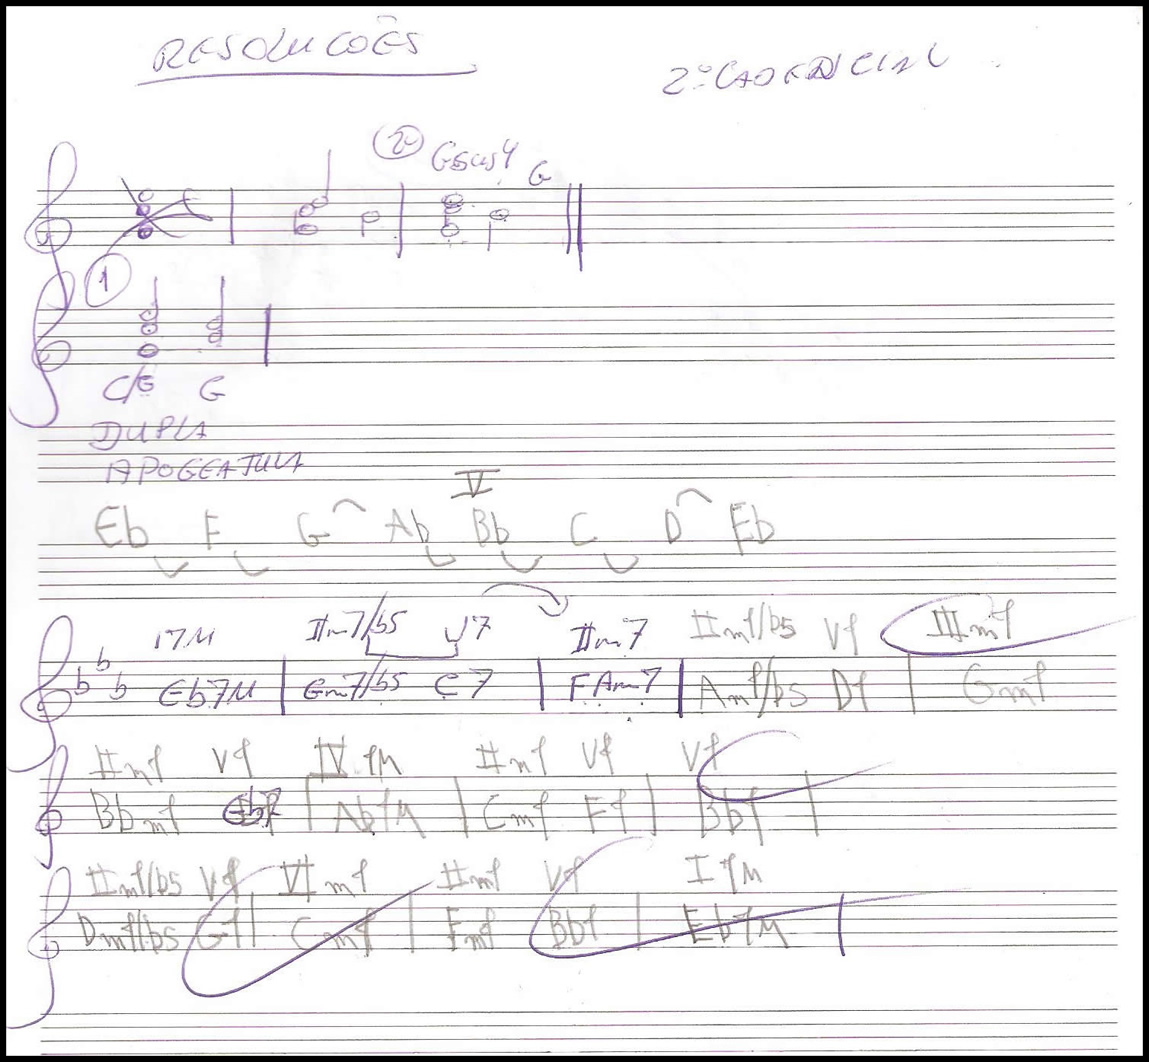 RESOLUCÕES
2º CADENCIAL
② Gsus4 G
①
C/G G
DUPLA
APOGEATURA
V
Eb F G Ab Bb C D Eb
I7M IIm7/b5 V7 IIm7 IIm7/b5 V7 IIIm7
b b b Eb7M Gm7/b5 C7 F Am7 Am7/b5 D7 Gm7
IIm7 V7 IV7M IIm7 V7 V7
Bbm7 Eb7 Ab7M Cm7 F7 Bb7
IIm7/b5 V7 VIm7 IIm7 V7 I7M
Dm7/b5 G7 Cm7 Fm7 Bb7 Eb7M